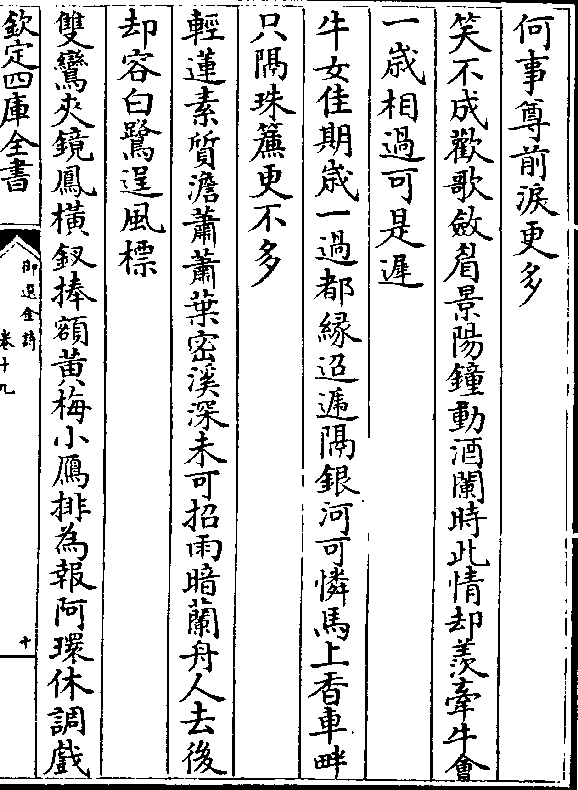 何事尊前淚更多
笑不成歡歌斂眉景陽鐘動酒闌時此情却羨牽牛會
一歲相過可是遲
牛女佳期歲一過都緣迢遞隔銀河可憐馬上香車畔
只隔珠簾更不多
輕蓮素質澹蕭蕭葉密溪深未可招雨暗蘭舟人去後
却容白鷺逞風標
雙鸞夾鏡鳳橫釵捧額黃梅小鴈排為報阿環休調戲
欽定四庫全書
御選金詩
卷十九
十